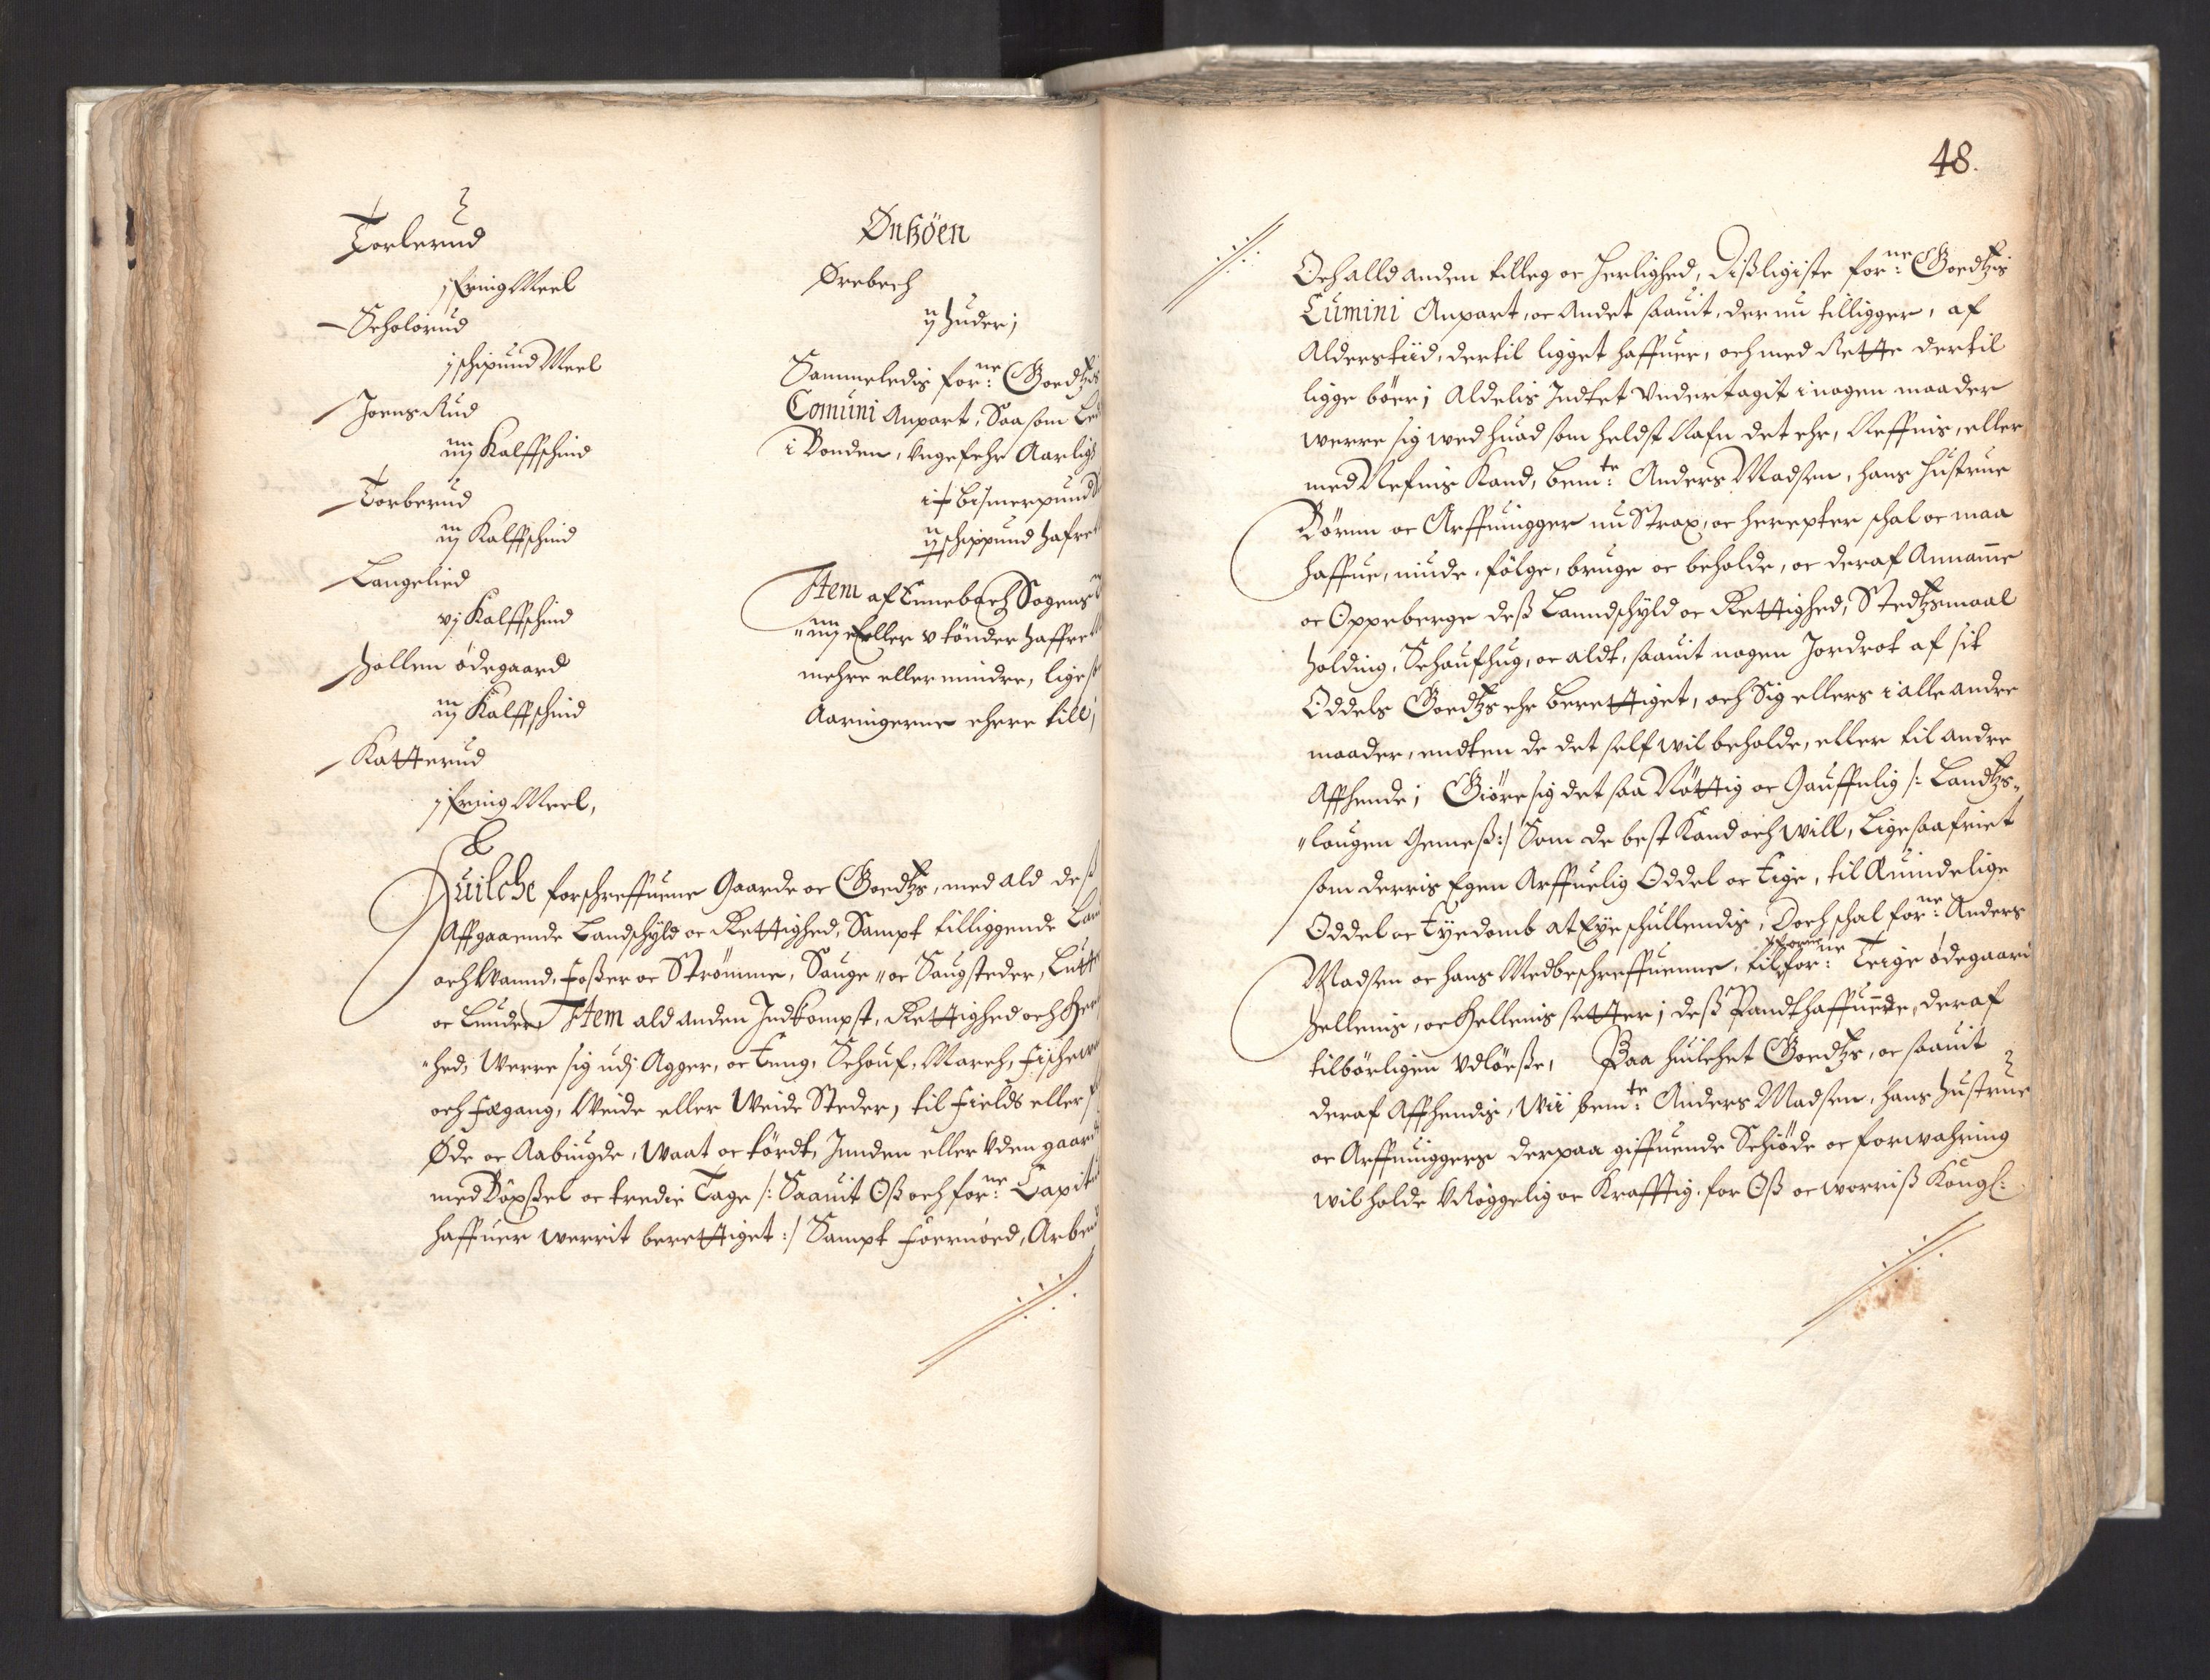 Torlerud
j fring Meel
Scholerud
j schipund Meel
Joens Rud
iiij Kalffschind
Torberud
iij Kalffschind
Langelied
vj Kalffschind
Hollen ödegaard
iij Kalffschind
Katterud
j fring Meel,
Ønköen
Ørebech
ij huder;
Sammeledis forne: Goedtzis
Comuni Anpart, Saa som
i Bonden, Ungefehr Aarligh
Bismerpund
ij schippund hafre
Item af Ennebach Sogens
iiij eller v tönder haffre
mehre eller mindre, lige
Aaringerne ehere till;
Huilche forschreffuene Gaarde oc Goedtzs, med ald deß
Affgaaende Landschyld oc Rettighed, Sampt tilliggende
och Wannd, Foßer oc Strömme, Sauge oc Saugsteder,
oc Lunder Item ald anden Indkompst, Rettighed och
hed, Werre sig udj Agger, oc Eng, Schouf, March,
och Fægang, Weide eller Weide Steder, til Fields eller
Øde oc Aabiugde, Waat oc tördt, Innden eller Uden gaard
med Böxßel oc tredie Tage /: Saauit Oß och forne: Capit
haffuer werrit berettiget :/ Sampt Foernöed, Arbei
48.
Och alld anden tilleg oc herlighed, Dißligiste forne: Goedtzis
Cumini Anpart, oc Andet saauit, der nu tilligger, af
Alderstiid, dertil ligget haffuer, och med Rette dertil
ligge böer; Aldelis Indtet Undertagit i nogen maader
werre sig wed huad som heldst Nafn det ehr, Neffnis, eller
med Nefnis Kand, bemte: Anders Madsen, hans hustrue
Börnn oc Arffuingger nu Strax, oc herepter schal oc maa
haffue, niude, fölge, bruge oc beholde, oc deraf Annamme
oc Oppeberge deß Lanndschyld oc Rettighed, Stedtzmaal
holding, Schoufhug, oc aldt, saauit nogen Jordrot af sit
Oddels Goedtzs ehr berettiget, och Sig ellers i alle andre
maader, endten de det self wil beholde, eller til andre
Affhende; Giöre sig det saa Nöttig oc Gauffnlig /: Landtzs-
lougen Gemeß :/ Som de best Kand och will, Lige saa friet
som derris Egen Arffuelig Oddel oc Eige, til Euindelige
Oddel oc Eyedomb at Eye schullendis, Doch schal forne: Anders
Madsen oc hans Medbeschreffuenne, til forne: Teige ödegaard
Hellenis, oc Hellenis setter; deß Pandthaffuende, deraf
tilbörligen Udlöesße, Paa huilchet Goedtzs, oc saauit
deraf Affhendis, Wii bemte: Anders Madsen, hans hustrue
oc Arffuinggers derpaa giffuende Schiöde oc forwahring
wil holde Uryggelig oc Krafftig, for Oß oc worriß Kongl: